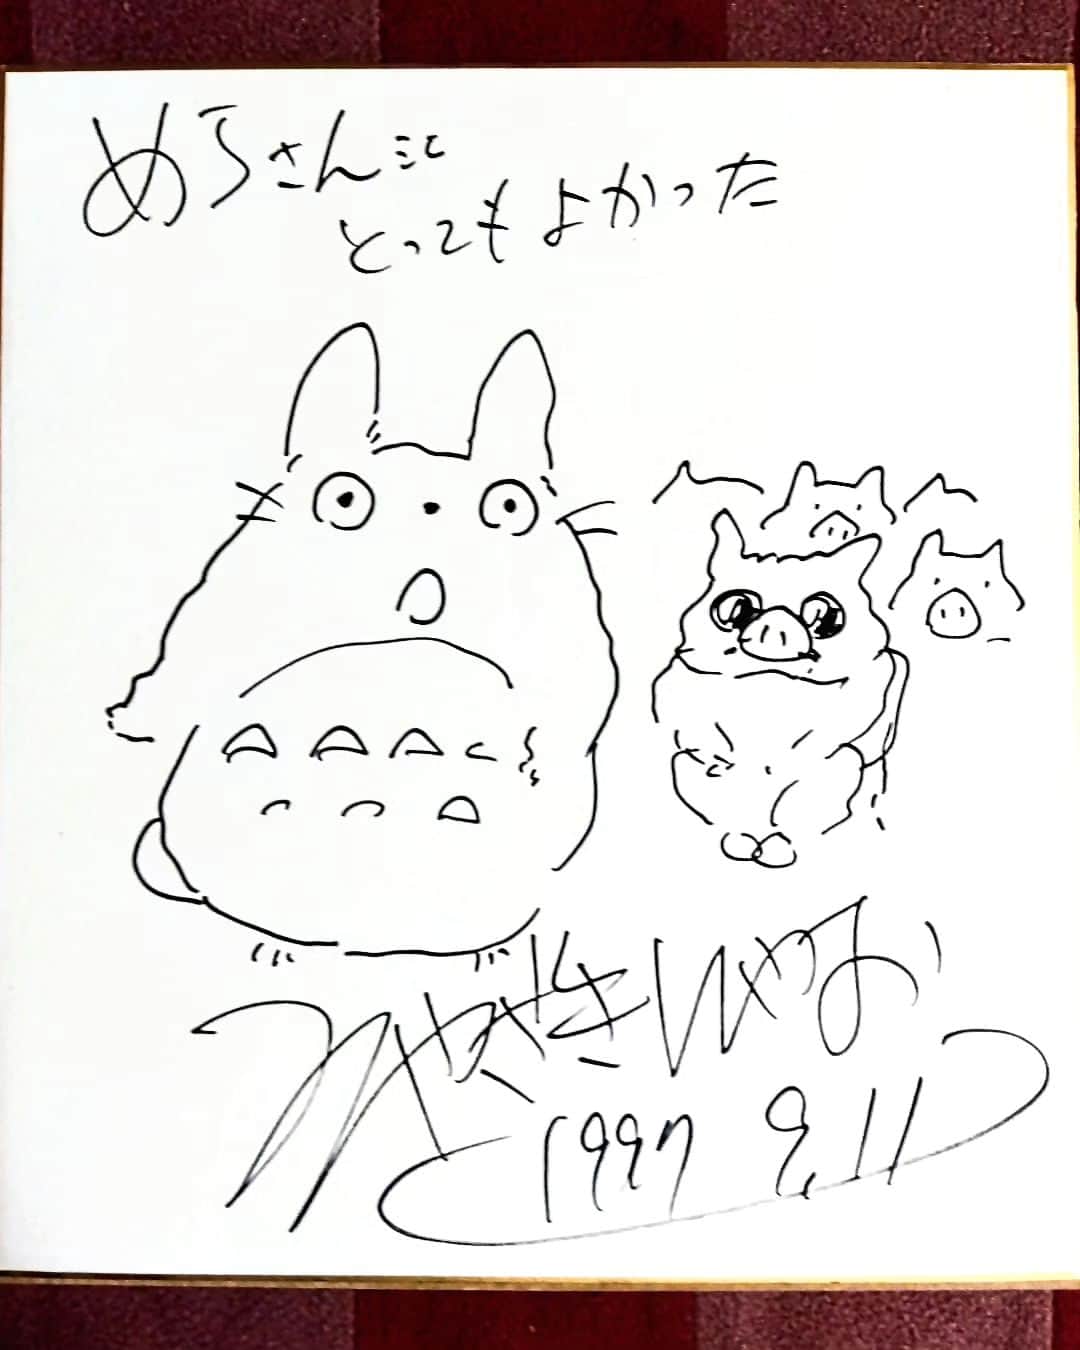 めろさんに
とってもよかった
みやざきはやお
1997 9.11